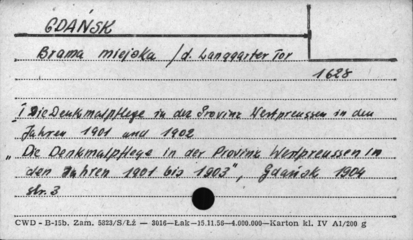 GDAŃSK
Brama miejska /d. Langgarter Tor
1628
"Die Denkmalpflege in der Provinz Westpreussen in den
Jahren 1901 und 1902
„Die Denkmalpflege in der Provinz Westpreussen in
den Jahren 1901 bis 1903", Gdańsk 1904
str. 3
CWD - B-15b. Zam. 5823/S/Łż — 3016—Łak—15.11.56—4.000.000—Karton kl. IV A1/200 g